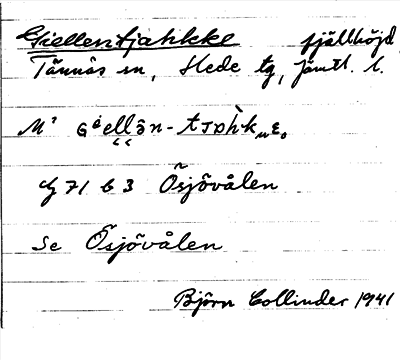 Giellentjahkke fjällhöjd
Tännäs sn, Hede tg, Jämtl. l.
G 71 b 3 Ösjövålen
Se Ösjövålen
Björn Collinder 1941